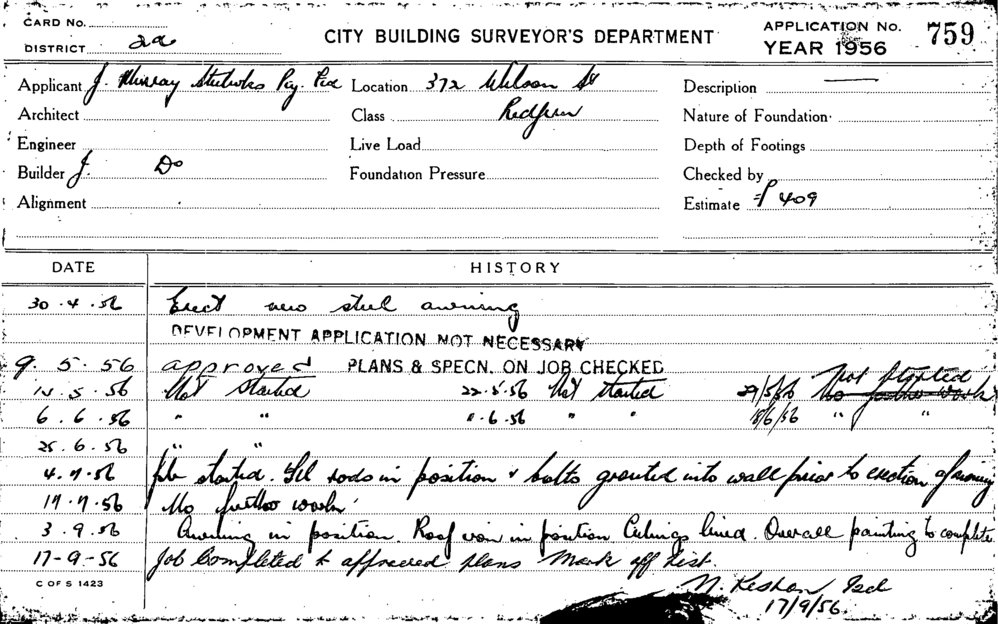 CARD No.
DISTRICT 2a
CITY BUILDING SURVEYOR'S DEPARTMENT
APPLICATION No. 759
YEAR 1956
Applicant J. Murray Pty. Location 372 Wilson St Description
Architect Class Redfern Nature of Foundation
Engineer Live Load Depth of Footings
Builder J. Do Foundation Pressure Checked by
Alignment Estimate £409
DATE HISTORY
30.4.56 Erect new steel awning
DEVELOPMENT APPLICATION NOT NECESSARY
9.5.56 approved PLANS & SPECN. ON JOB CHECKED
.5.56 Not started 22.5.56 Not started 29/5/56 Not started No further work
6.6.56 " " .6.56 " " 18/6/56 " "
25.6.56 " "
4.7.56 Job started. rods in position & bolts grouted into wall prior to erection of awning
17.7.56 No further work.
3.9.56 Awning in position. Roof iron in position Ceilings lined. Overall painting to complete
17-9-56 Job Completed to approved plans Mark off list.
C OF S 1423
17/9/56